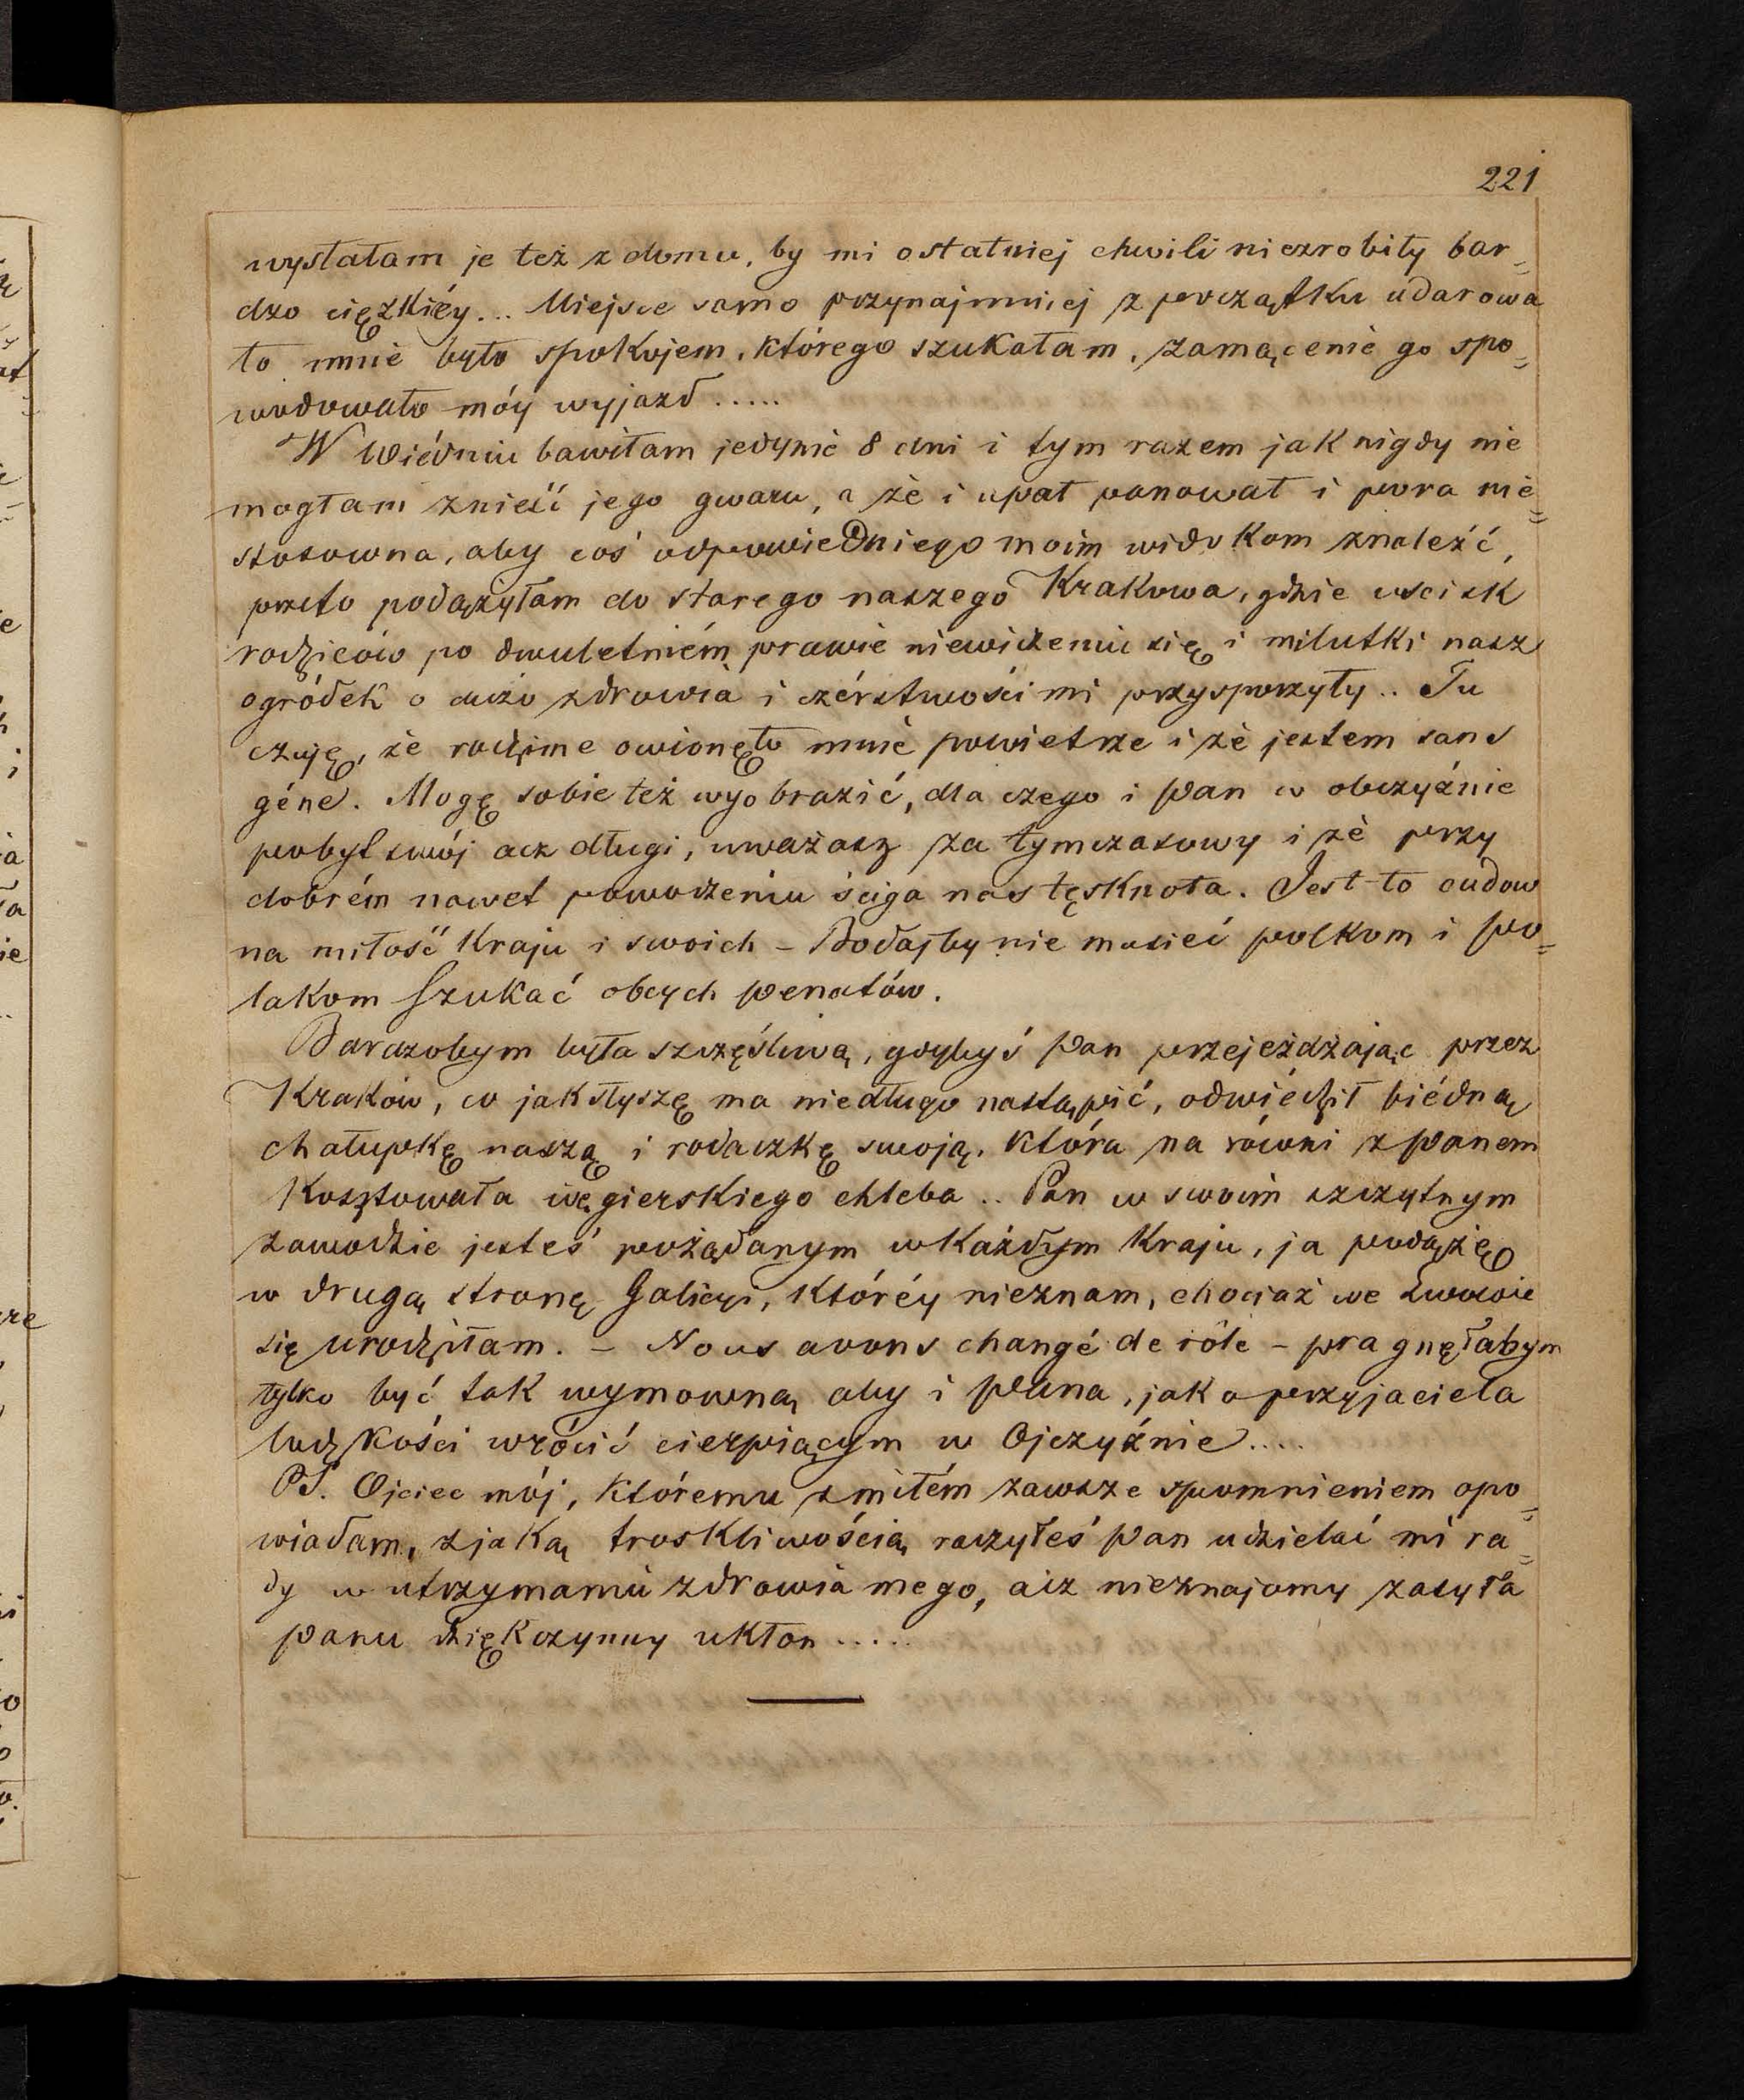 221
wysłałam je też z domu, by mi ostatniej chwili niezrobiły bar=
dzo ciężkiéy... Miejsce samo przynajmniej z początku udarowa
ło mnie było spokojem, którego szukałam, zamącenie go spo=
wodowało móy wyjazd.....
W Wiédniu bawiłam jedynie 8 dni i tym razem jak nigdy nie
mogłam znieść jego gwaru, a że i upał panował i pora nie=
stosowna, aby coś odpowiedniego moim widokom znaleźć,
przeto podążyłam do starego naszego Krakowa, gdzie uścisk
rodziców po dwuletniém prawie niewidzeniu się i milutki nasz
ogródek o dużo zdrowia i czérstwości mi przysporzyły.. Tu
czuję, że rodzime owionęło mnie powietrze i że jestem sans
géne. Mogę sobie też wyobrazić, dla czego i Pan w obczyźnie
pobyt swój acz długi, uważasz za tymczasowy i że przy
dobrém nawet powodzeniu ściga nas tęsknota. Jest-to cudow
na miłość kraju i swoich – Bodajby nie musieć polkom i po=
lakom szukać obcych penatów.
Barzobym była szczęśliwą, gdybyś Pan przejeżdżając przez
Kraków, co jak słyszę ma niedługo nastąpić, odwiédził biédną
chałupkę naszą i rodaczkę swoją, która na równi z Panem
kosztowała węgierskiego chleba.. Pan w swoim szczytnym
zawodzie jesteś pożądanym w każdym kraju, ja podążę
w drugą stronę Galicyi, któréy nieznam, chociaż we Lwowie
się urodziłam. – Nous avons changé de rôle – pragnęłabym
tylko być tak wymowną aby i Pana, jako przyjaciela
ludzkości wrócić cierpiącym w Ojczyźnie....
PS. Ojciec mój, któremu z miłém zawsze spomnieniem opo=
wiadam, z jaką troskliwością raczyłeś Pan udzielać mi ra=
dy w utrzymaniu zdrowia mego, acz nieznajomy zasyła
Panu dziękczynny ukłon.....